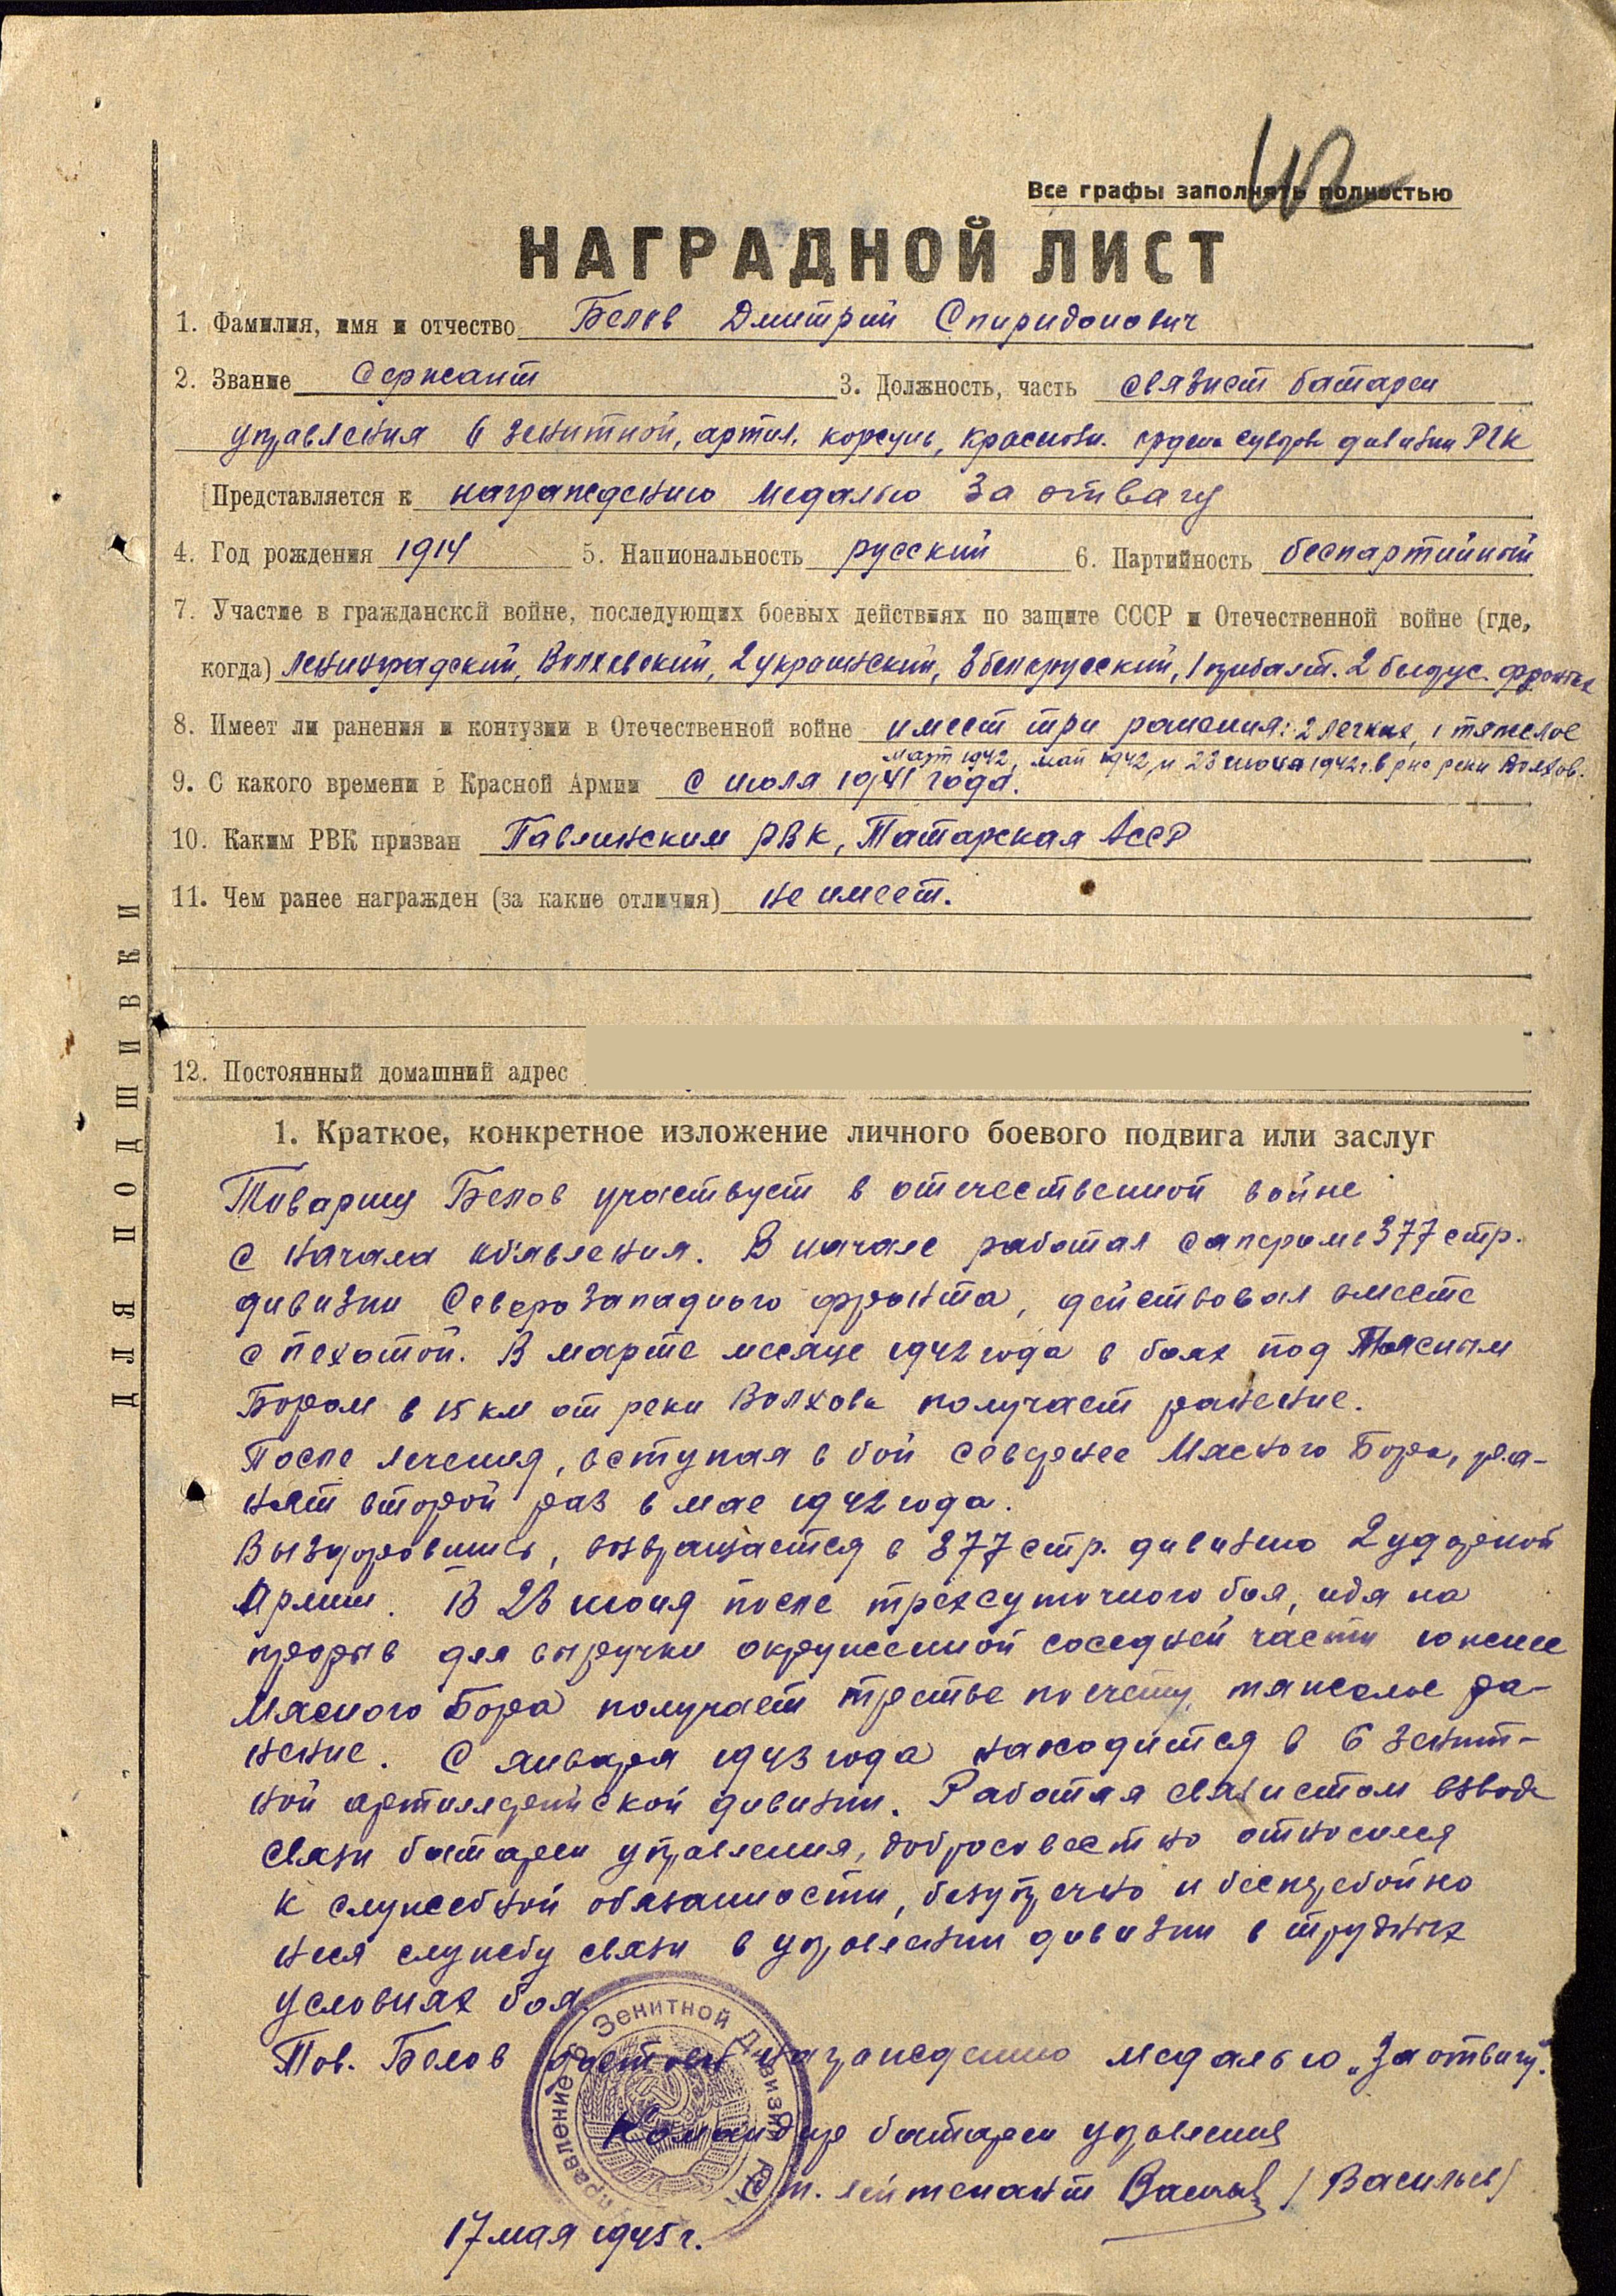 Все графы заполнять полностью
НАГРАДНОЙ ЛИСТ
1. Фамилия, имя и отчество Белов Дмитрий Спиридонович
2. Звание Сержант 3. Должность, часть связист батареи
управления 6 зенитной, артил. корсунь, краснозн. ордена суворов дивизии РГК
Представляется к награждению медалью За отвагу
4. Год рождения 1914 5. Национальность русский 6. Партийность беспартийный
7. Участие в гражданской войне, последующих боевых действиях по защите СССР и Отечественной войне (где,
когда) Ленинградский, Волховский, 2 украинский, 3 белорусский, 1 прибалт. 2 белорус. фронтах
8. Имеет ли ранения и контузии в Отечественной войне имеет три ранения: 2 легких, 1 тяжелое
март 1942, май 1942, и 23 июня 1942 г. в р-не реки Волхов.
9. С какого времени в Красной Армии с июля 1941 года.
10. Каким РВК призван РВК, Татарская АССР
11. Чем ранее награжден (за какие отличия) не имеет.
12. Постоянный домашний адрес
ДЛЯ ПОДШИВКИ
1. Краткое, конкретное изложение личного боевого подвига или заслуг
Товарищ Белов участвует в отечественной войне
с начала объявления. В начале работал сапером в 377 стр.
дивизии Северо Западного фронта, действовал вместе
с пехотой. В марте месяце 1942 года в боях под Мясным
Бором в 15 км от реки Волхова получает ранение.
После лечения, вступая в бой севернее Мясного Бора, ра-
нят второй раз в мае 1942 года.
Выздоровивши, возвращается в 377 стр. дивизию 2 ударной
Армии. В 23 июня после трехсуточного боя, идя на
прорыв для выручки окруженной соседней части южнее
Мясного Бора получает третье по счету, тяжелое ра-
нение. С января 1943 года находится в 6 зенит-
ной артиллерийской дивизии. Работая связистом взвода
связи батареи управления, добросовестно относился
к служебной обязанности, безупречно и бесперебойно
неся службу связи в управлении дивизии в трудных
условиях боя.
Тов. Белов достоен награждению медалью „За отвагу".
Командир батареи управления
Ст. лейтенант / Васильев /
17 мая 1945 г.
Управление 6 Зенитной Дивизии